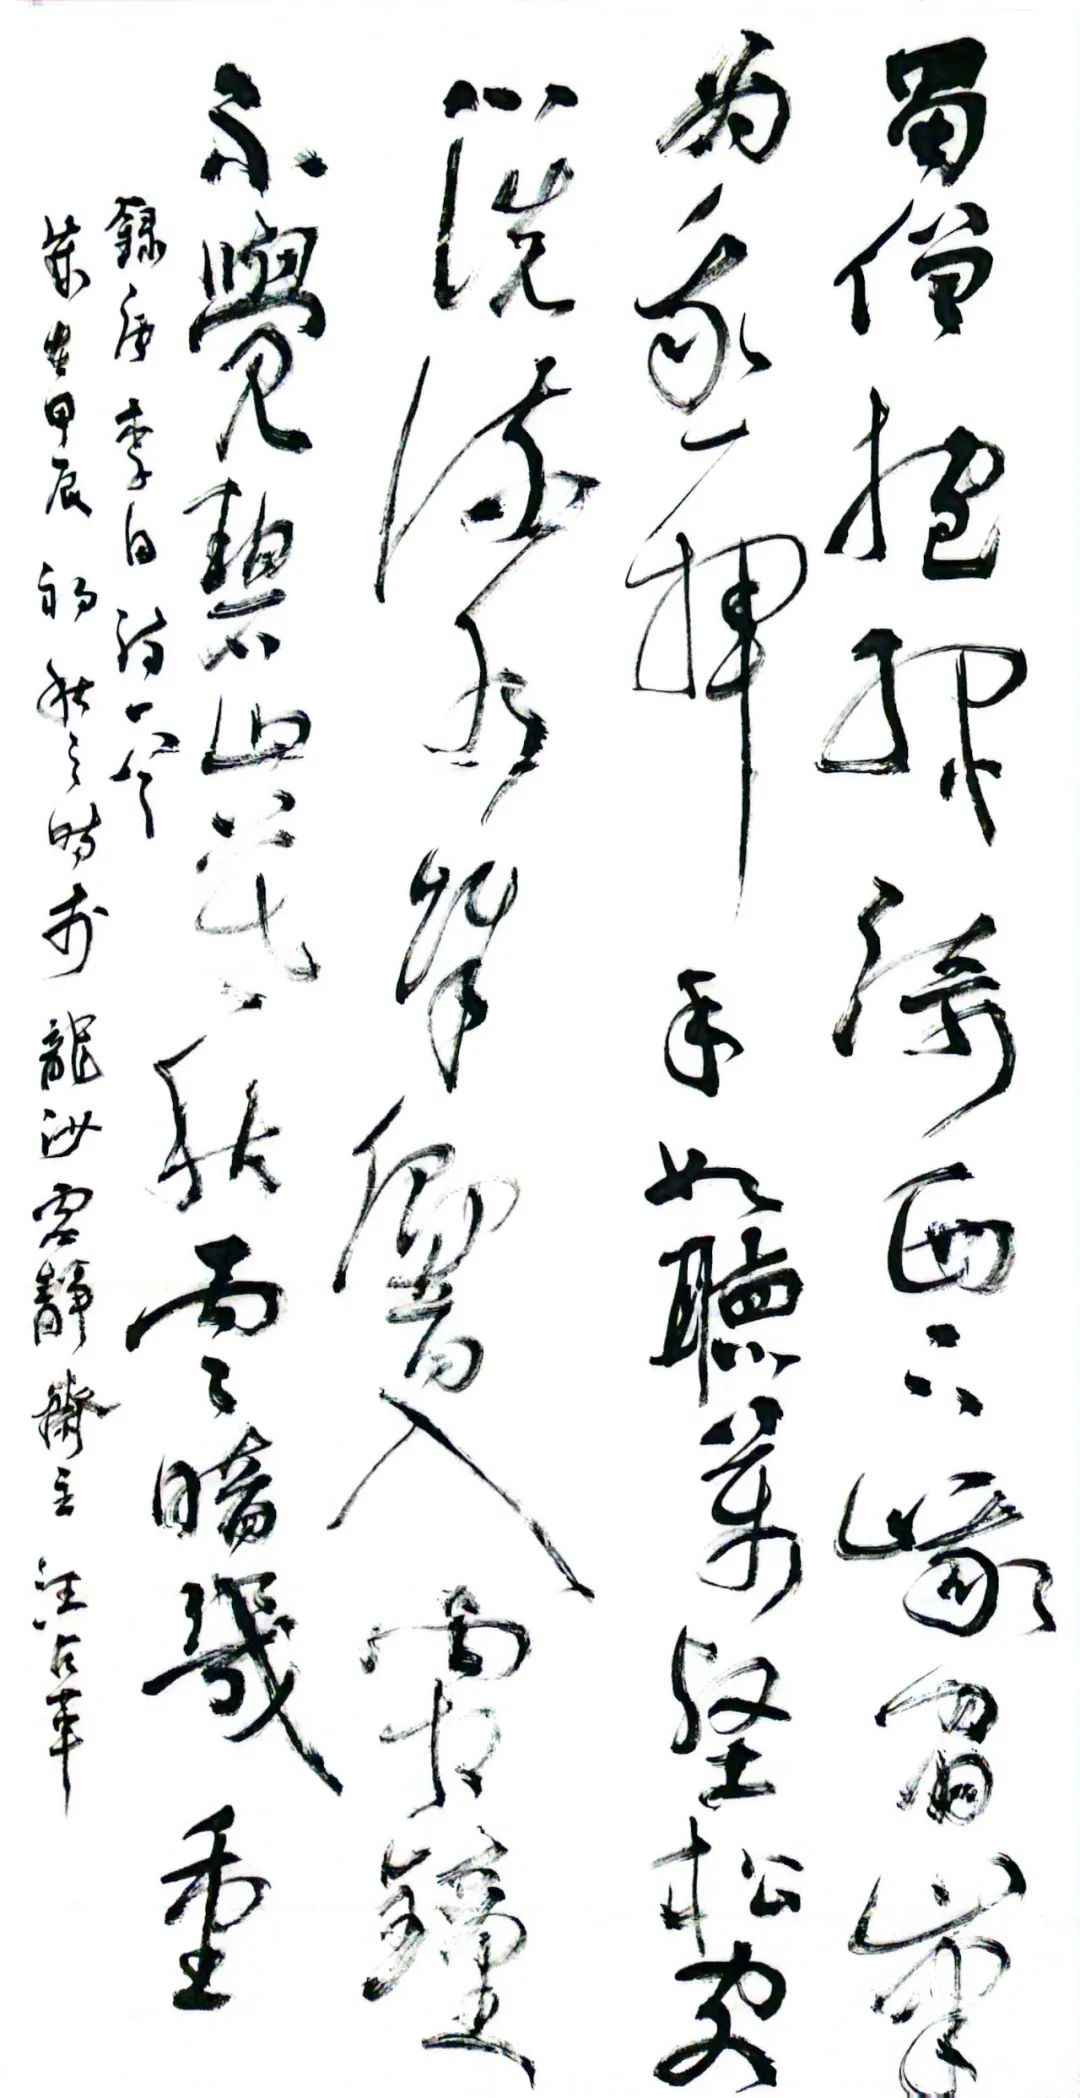 蜀僧抱綠綺西下峨眉峰
為我一揮手如聽萬壑松客
心洗流水餘響入霜鐘
不覺碧山暮秋雲暗幾重
錄唐李白詩一首
歲甲辰初秋之時於龍沙靜齋主汪占